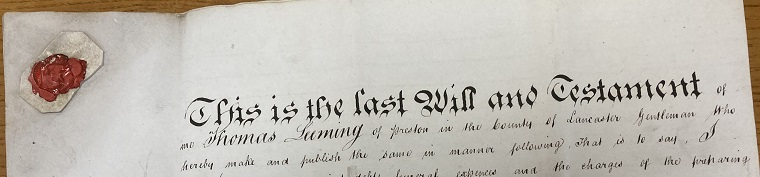 This is the last Will and Testament of
me Thomas Leeming of Preston in the County of Lancaster Gentleman Who
hereby make and publish the same in manner following That is to say, I
debts funeral expences and the charges of the preparing